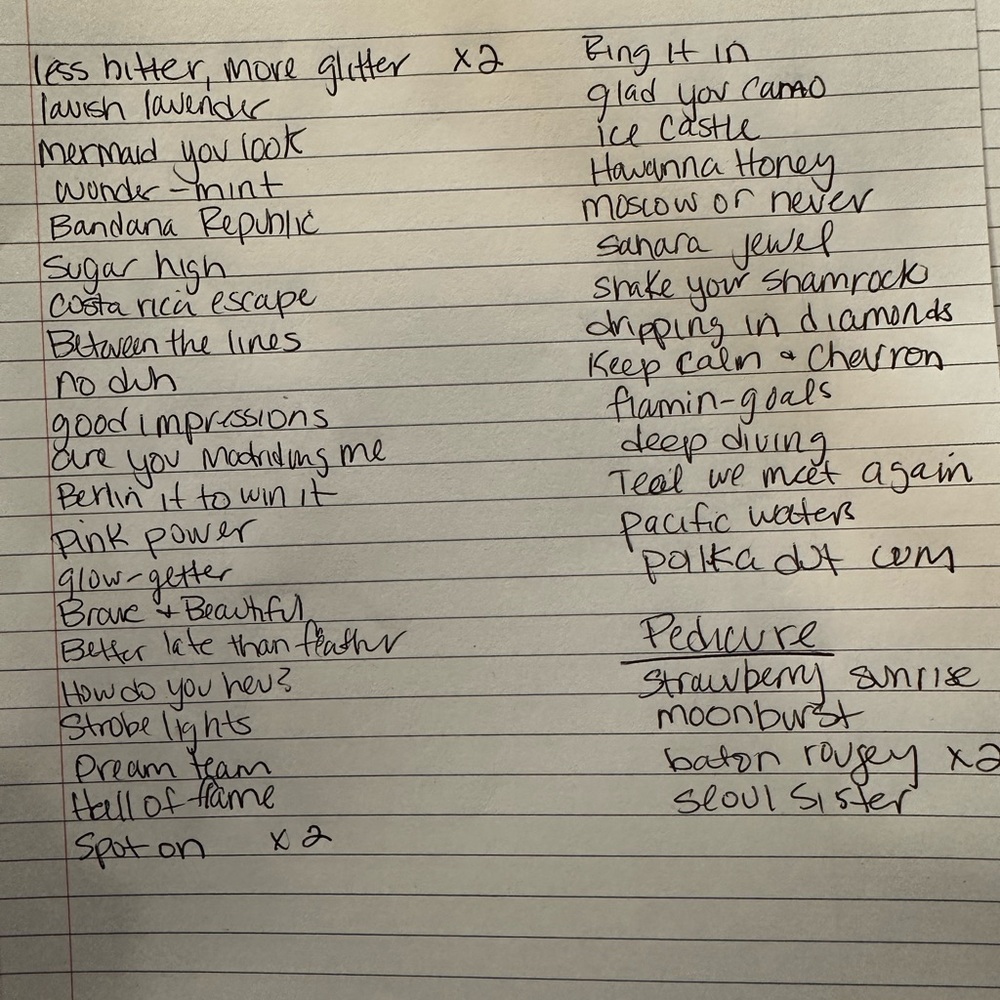 less bitter, more glitter x2
lavish lavender
mermaid you look
wonder-mint
Bandana Republic
Sugar high
Costa rica escape
Between the lines
no duh
good impressions
are you Madriding me
Berlin it to win it
pink power
glow-getter
Brave + Beautiful
Better late than feather
How do you hev?
Strobe lights
Dream team
Hall of flame
Spot on x2
Bing it in
glad you Camo
ice Castle
Havanna Honey
moscow or never
sahara jewel
shake your shamrock
dripping in diamonds
Keep calm & Chevron
flamin-goals
deep diving
Teal we meet again
pacific waters
polka dot com
Pedicure
Strawberry sunrise
moonburst
baton rougey x2
seoul sister